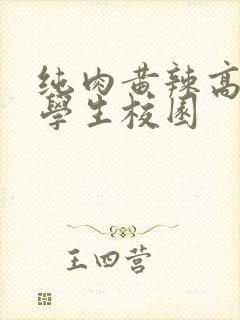 纯肉黄辣高
學生校园
王四营